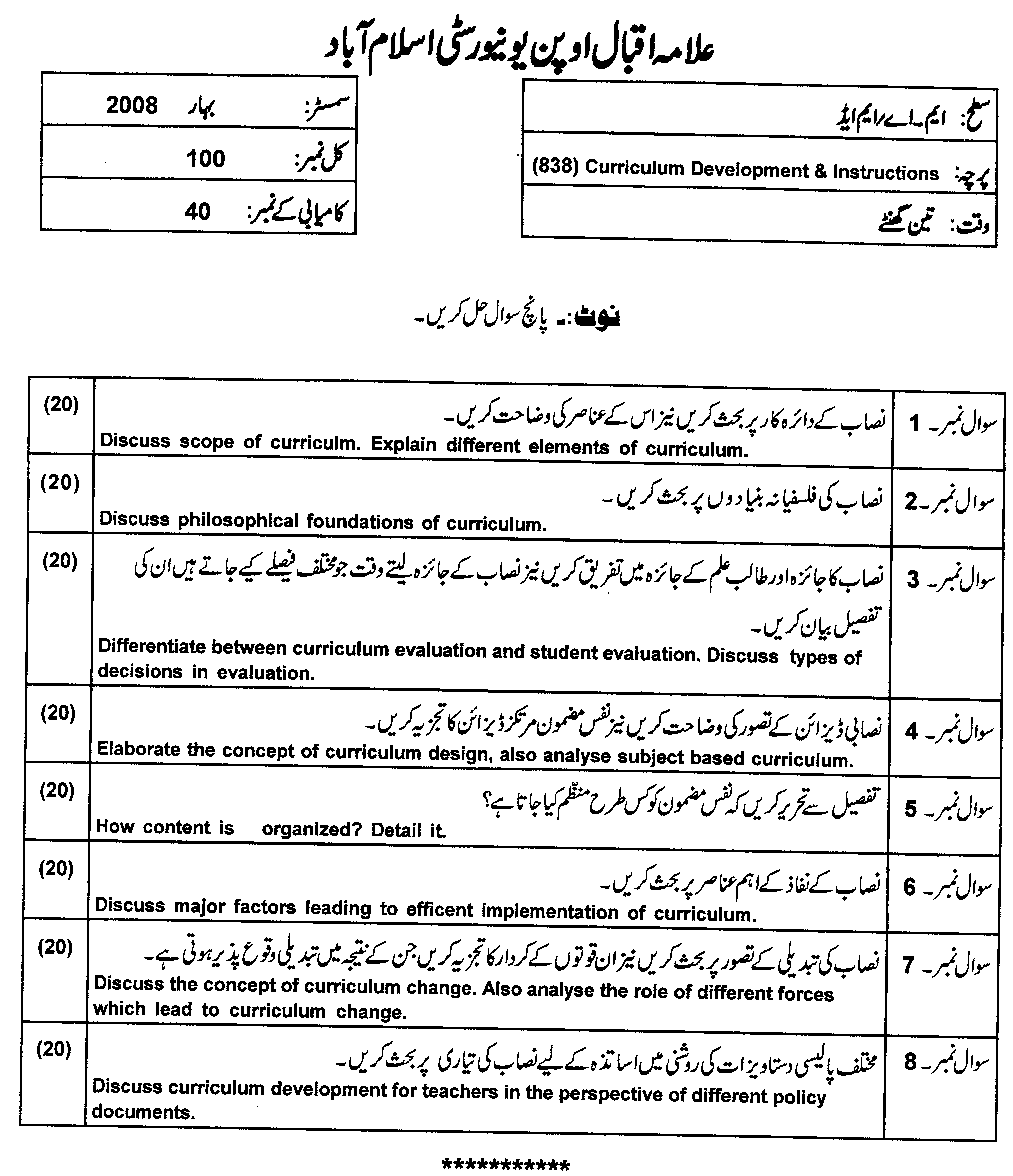 علامہ اقبال اوپن یونیورسٹی اسلام آباد
سطح: ایم۔اے/ایم ایڈ
پرچہ: (838) Curriculum Development & Instructions
وقت: تین گھنٹے
سمسٹر: بہار 2008
کل نمبر: 100
کامیابی کے نمبر: 40
نوٹ:۔ پانچ سوال حل کریں۔
سوال نمبر۔ 1 نصاب کے دائرہ کار پر بحث کریں نیز اس کے عناصر کی وضاحت کریں۔ (20)
Discuss scope of curriculm. Explain different elements of curriculum.
سوال نمبر۔ 2 نصاب کی فلسفیانہ بنیادوں پر بحث کریں۔ (20)
Discuss philosophical foundations of curriculum.
سوال نمبر۔ 3 نصاب کا جائزہ اور طالب علم کے جائزہ میں تفریق کریں نیز نصاب کے جائزہ لیتے وقت جو مختلف فیصلے کیے جاتے ہیں ان کی (20)
تفصیل بیان کریں۔
Differentiate between curriculum evaluation and student evaluation. Discuss types of
decisions in evaluation.
سوال نمبر۔ 4 نصابی ڈیزائن کے تصور کی وضاحت کریں نیز نفس مضمون مرتکز ڈیزائن کا تجزیہ کریں۔ (20)
Elaborate the concept of curriculum design, also analyse subject based curriculum.
سوال نمبر۔ 5 تفصیل سے تحریر کریں کہ نفس مضمون کو کس طرح منظم کیا جاتا ہے؟ (20)
How content is organized? Detail it.
سوال نمبر۔ 6 نصاب کے نفاذ کے اہم عناصر پر بحث کریں۔ (20)
Discuss major factors leading to efficent implementation of curriculum.
سوال نمبر۔ 7 نصاب کی تبدیلی کے تصور پر بحث کریں نیز ان قوتوں کے کردار کا تجزیہ کریں جن کے نتیجہ میں تبدیلی وقوع پذیر ہوتی ہے۔ (20)
Discuss the concept of curriculum change. Also analyse the role of different forces
which lead to curriculum change.
سوال نمبر۔ 8 مختلف پالیسی دستاویزات کی روشنی میں اساتذہ کے لیے نصاب کی تیاری پر بحث کریں۔ (20)
Discuss curriculum development for teachers in the perspective of different policy
documents.
***********